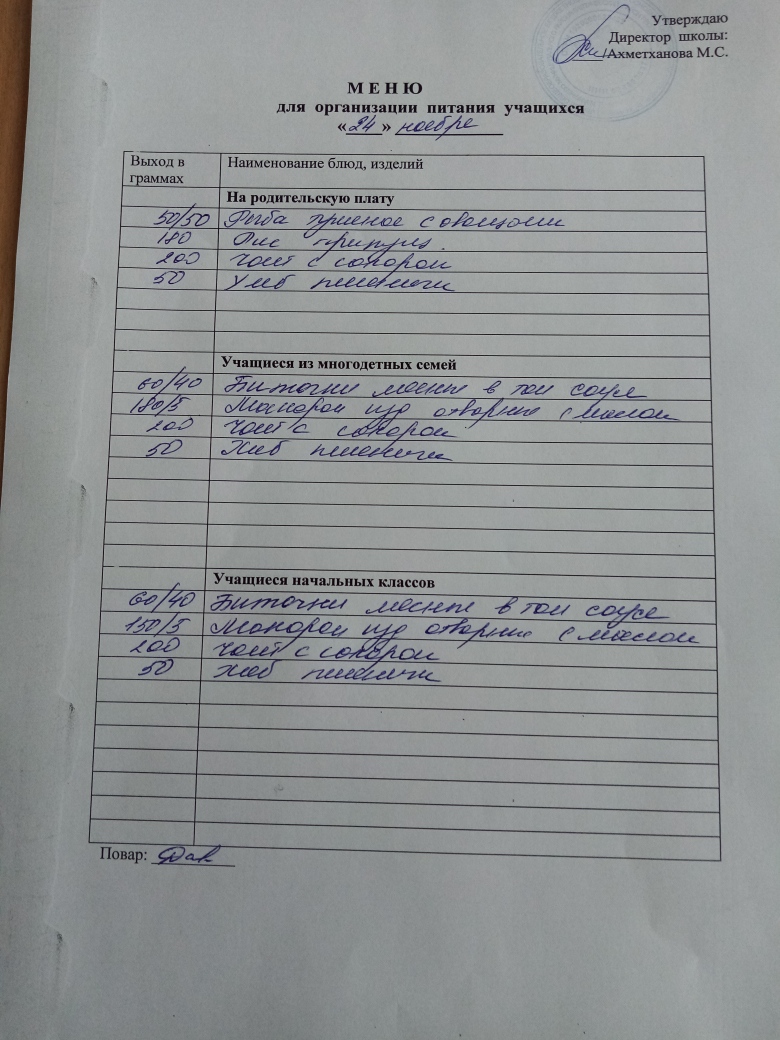 Утверждаю
Директор школы:
/Ахметханова М.С.
М Е Н Ю
для организации питания учащихся
«24» ноября
Выход в граммах Наименование блюд, изделий
На родительскую плату
50/50 Рыба тушеное с овощами
180 Рис припущ.
200 Чай с сахаром
50 Хлеб пшеничн
Учащиеся из многодетных семей
60/40 Биточки мясные в том соусе
180/5 Макарон изд отварные с маслом
200 Чай с сахаром
50 Хлеб пшеничн
Учащиеся начальных классов
60/40 Биточки мясные в том соусе
150/5 Макарон изд отварные с маслом
200 Чай с сахаром
50 Хлеб пшеничн
Повар: